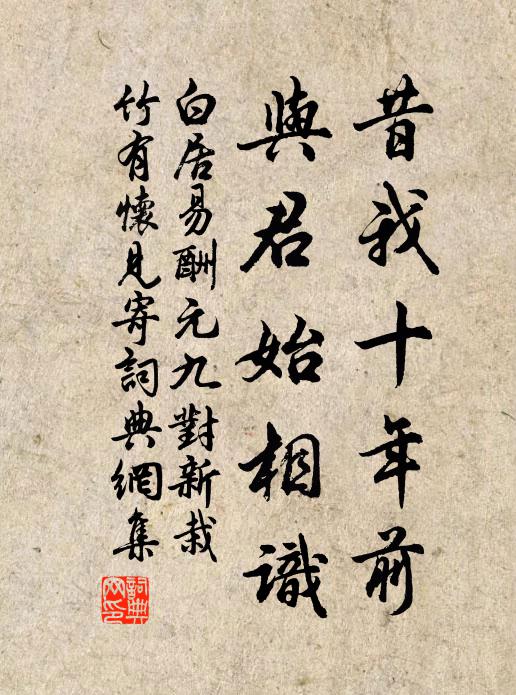 昔我十年前
與君始相識
白居易酬元九對新栽
竹有懷見寄詞典網集
詞典網印